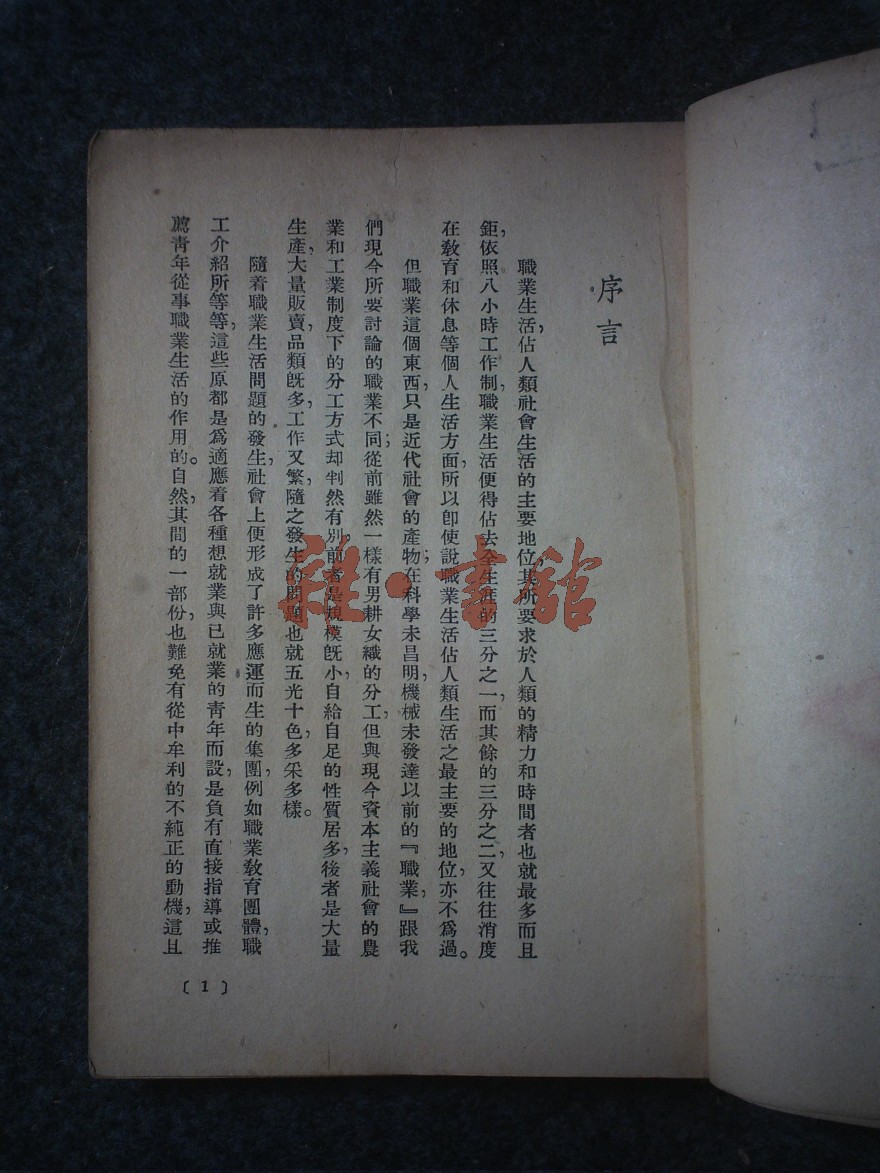 序言
職業生活，佔人類社會生活的主要地位，其所要求於人類的精力和時間者也就最多而且
鉅，依照八小時工作制，職業生活便得佔去全生涯的三分之一，而其餘的三分之二，又往往消度
在教育和休息等個人生活方面，所以卽使說職業生活佔人類生活之最主要的地位，亦不爲過。
但職業這個東西，只是近代社會的產物；在科學未昌明，機械未發達以前的『職業，』跟我
們現今所要討論的職業不同；從前雖然一樣有男耕女織的分工，但與現今資本主義社會的農
業和工業制度下的分工方式却判然有別前者是規模旣小，自給自足的性質居多，後者是大量
生產，大量販賣，品類旣多，工作又繁，隨之發生的問題也就五光十色，多采多樣。
隨着職業生活問題的發生，社會上便形成了許多應運而生的集團，例如職業教育團體，職
工介紹所等等，這些原都是爲適應着各種想就業與已就業的青年而設，是負有直接指導或推
薦青年從事職業生活的作用的。自然，其間的一部份，也難免有從中牟利的不純正的動機，這且
〔1〕
雜·書館